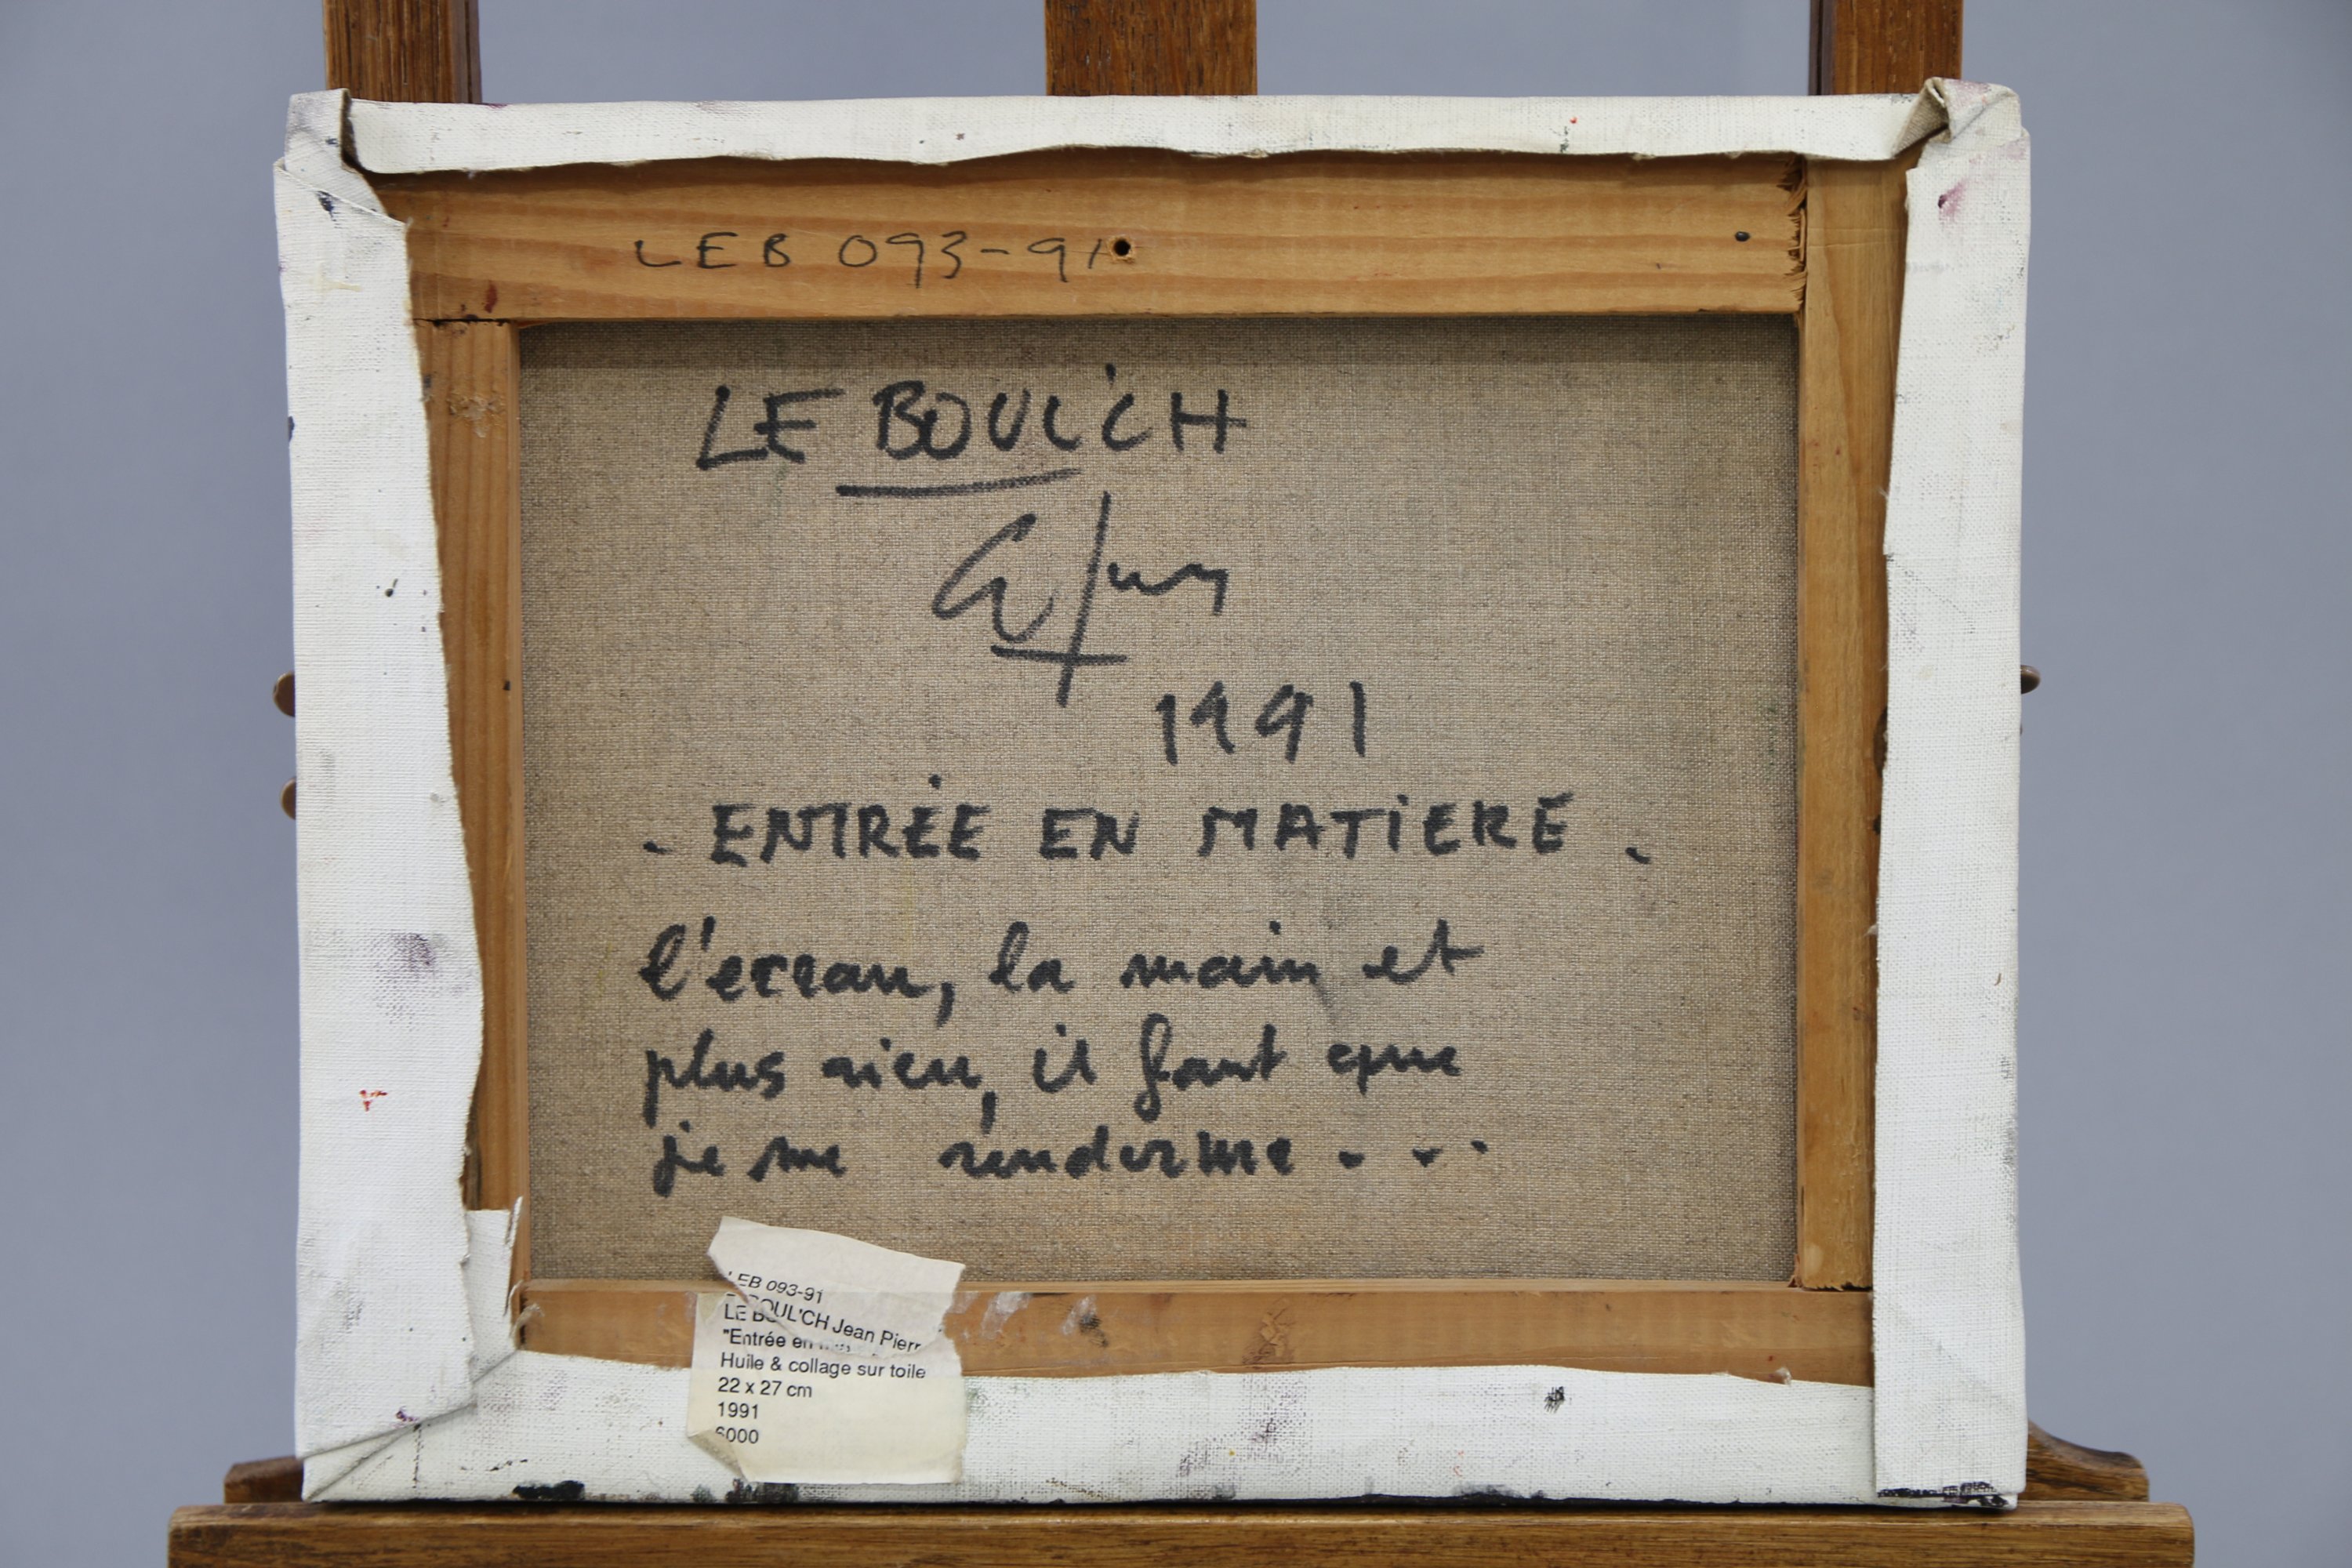 LEB 093-91
LE BOUL'CH
1991
. ENTRÉE EN MATIERE .
l'ecran, la main et
plus rien, il faut que
je me rendorme...
LEB 093-91
LE BOUL'CH Jean Pierr
"Entrée en
Huile & collage sur toile
22 x 27 cm
1991
6000